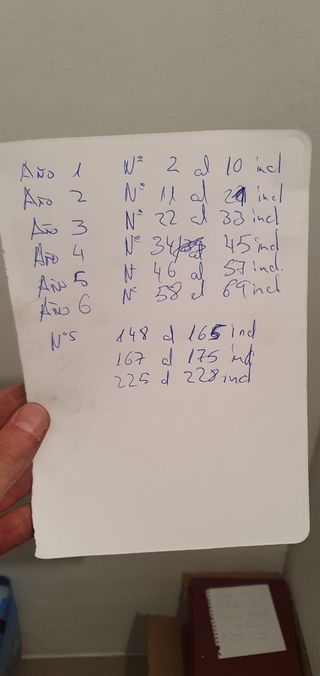 Año 1 Nº 2 al 10 incl
Año 2 Nº 11 al 21 incl
Año 3 Nº 22 al 33 incl
Año 4 Nº 34 al 45 incl
Año 5 Nº 46 al 57 incl.
Año 6 Nº 58 al 69 incl
Nºs 148 al 165 incl
167 al 175 incl
225 al 228 incl